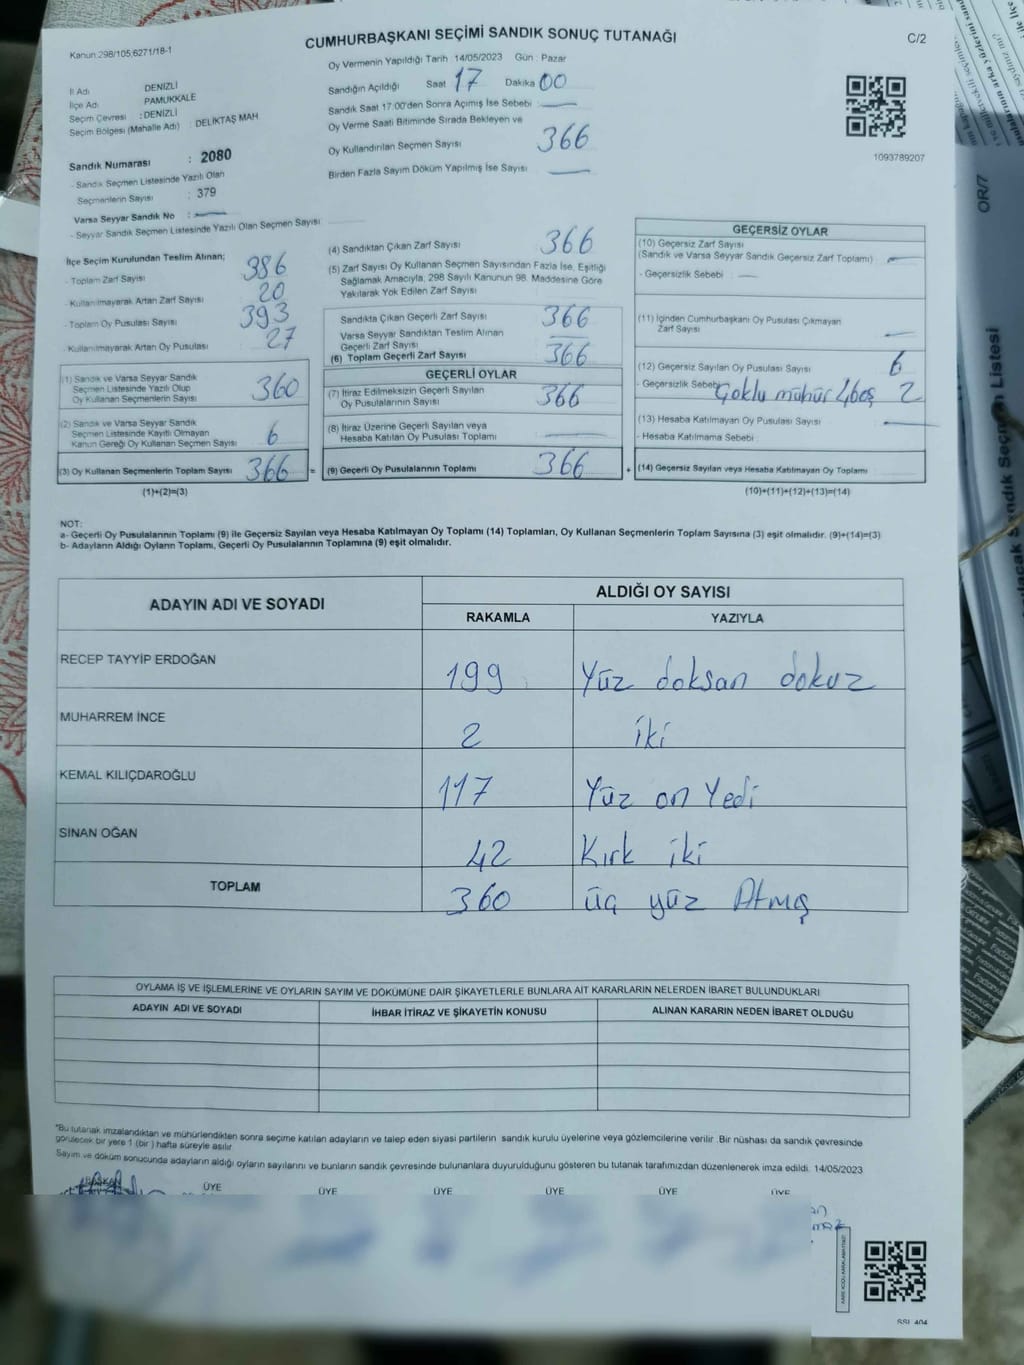 CUMHURBAŞKANI SEÇİMİ SANDIK SONUÇ TUTANAĞI
C/2
Kanun 298/105,6271/18-1
Oy Vermenin Yapıldığı Tarih 14/05/2023 Gün : Pazar
İl Adı DENİZLİ
İlçe Adı PAMUKKALE
Seçim Çevresi : DENİZLİ
Seçim Bölgesi (Mahalle Adı) : DELİKTAŞ MAH
Sandığın Açıldığı Saat 17 Dakika 00
Sandık Saat 17:00'den Sonra Açımış İse Sebebi :
Oy Verme Saati Bitiminde Sırada Bekleyen ve
Oy Kullandırılan Seçmen Sayısı 366
Birden Fazla Sayım Döküm Yapılmış İse Sayısı
1093789207
Sandık Numarası : 2080
- Sandık Seçmen Listesinde Yazılı Olan
Seçmenlerin Sayısı : 379
Varsa Seyyar Sandık No :
- Seyyar Sandık Seçmen Listesinde Yazılı Olan Seçmen Sayısı
İlçe Seçim Kurulundan Teslim Alınan;
- Toplam Zarf Sayısı 386
- Kullanılmayarak Artan Zarf Sayısı 20
- Toplam Oy Pusulası Sayısı 393
- Kullanılmayarak Artan Oy Pusulası 27
(1) Sandık ve Varsa Seyyar Sandık
Seçmen Listesinde Yazılı Olup
Oy Kullanan Seçmenlerin Sayısı 360
(2) Sandık ve Varsa Seyyar Sandık
Seçmen Listesinde Kayıtlı Olmayan
Kanun Gereği Oy Kullanan Seçmen Sayısı 6
(3) Oy Kullanan Seçmenlerin Toplam Sayısı 366 =
(1)+(2)=(3)
(4) Sandıktan Çıkan Zarf Sayısı 366
(5) Zarf Sayısı Oy Kullanan Seçmen Sayısından Fazla İse, Eşitliği
Sağlamak Amacıyla, 298 Sayılı Kanunun 98. Maddesine Göre
Yakılarak Yok Edilen Zarf Sayısı
Sandıkta Çıkan Geçerli Zarf Sayısı 366
Varsa Seyyar Sandıktan Teslim Alınan
Geçerli Zarf Sayısı
(6) Toplam Geçerli Zarf Sayısı 366
GEÇERLİ OYLAR
(7) İtiraz Edilmeksizin Geçerli Sayılan
Oy Pusulalarının Sayısı 366
(8) İtiraz Üzerine Geçerli Sayılan veya
Hesaba Katılan Oy Pusulası Toplamı
(9) Geçerli Oy Pusulalarının Toplamı 366 +
GEÇERSİZ OYLAR
(10) Geçersiz Zarf Sayısı
(Sandık ve Varsa Seyyar Sandık Geçersiz Zarf Toplamı)
- Geçersizlik Sebebi :
(11) İçinden Cumhurbaşkanı Oy Pusulası Çıkmayan
Zarf Sayısı
(12) Geçersiz Sayılan Oy Pusulası Sayısı 6
- Geçersizlik Sebebi Çoklu mühür 4 boş 2
(13) Hesaba Katılmayan Oy Pusulası Sayısı
- Hesaba Katılmama Sebebi
(14) Geçersiz Sayılan veya Hesaba Katılmayan Oy Toplamı
(10)+(11)+(12)+(13)=(14)
NOT:
a- Geçerli Oy Pusulalarının Toplamı (9) ile Geçersiz Sayılan veya Hesaba Katılmayan Oy Toplamı (14) Toplamları, Oy Kullanan Seçmenlerin Toplam Sayısına (3) eşit olmalıdır. (9)+(14)=(3)
b- Adayların Aldığı Oyların Toplamı, Geçerli Oy Pusulalarının Toplamına (9) eşit olmalıdır.
ADAYIN ADI VE SOYADI
ALDIĞI OY SAYISI
RAKAMLA YAZIYLA
RECEP TAYYİP ERDOĞAN 199 Yüz doksan dokuz
MUHARREM İNCE 2 iki
KEMAL KILIÇDAROĞLU 117 Yüz on Yedi
SİNAN OĞAN 42 Kırk iki
TOPLAM 360 üç yüz Atmış
OYLAMA İŞ VE İŞLEMLERİNE VE OYLARIN SAYIM VE DÖKÜMÜNE DAİR ŞİKAYETLERLE BUNLARA AİT KARARLARIN NELERDEN İBARET BULUNDUKLARI
ADAYIN ADI VE SOYADI İHBAR İTİRAZ VE ŞİKAYETİN KONUSU ALINAN KARARIN NEDEN İBARET OLDUĞU
*Bu tutanak imzalandıktan ve mühürlendikten sonra seçime katılan adayların ve talep eden siyasi partilerin sandık kurulu üyelerine veya gözlemcilerine verilir .Bir nüshası da sandık çevresinde
görülecek bir yere 1 (bir ) hafta süreyle asılır
Sayım ve döküm sonucunda adayların aldığı oyların sayılarını ve bunların sandık çevresinde bulunanlara duyurulduğunu gösteren bu tutanak tarafımızdan düzenlenerek imza edildi. 14/05/2023
BAŞKAN ÜYE ÜYE ÜYE ÜYE ÜYE ÜYE
OR/7